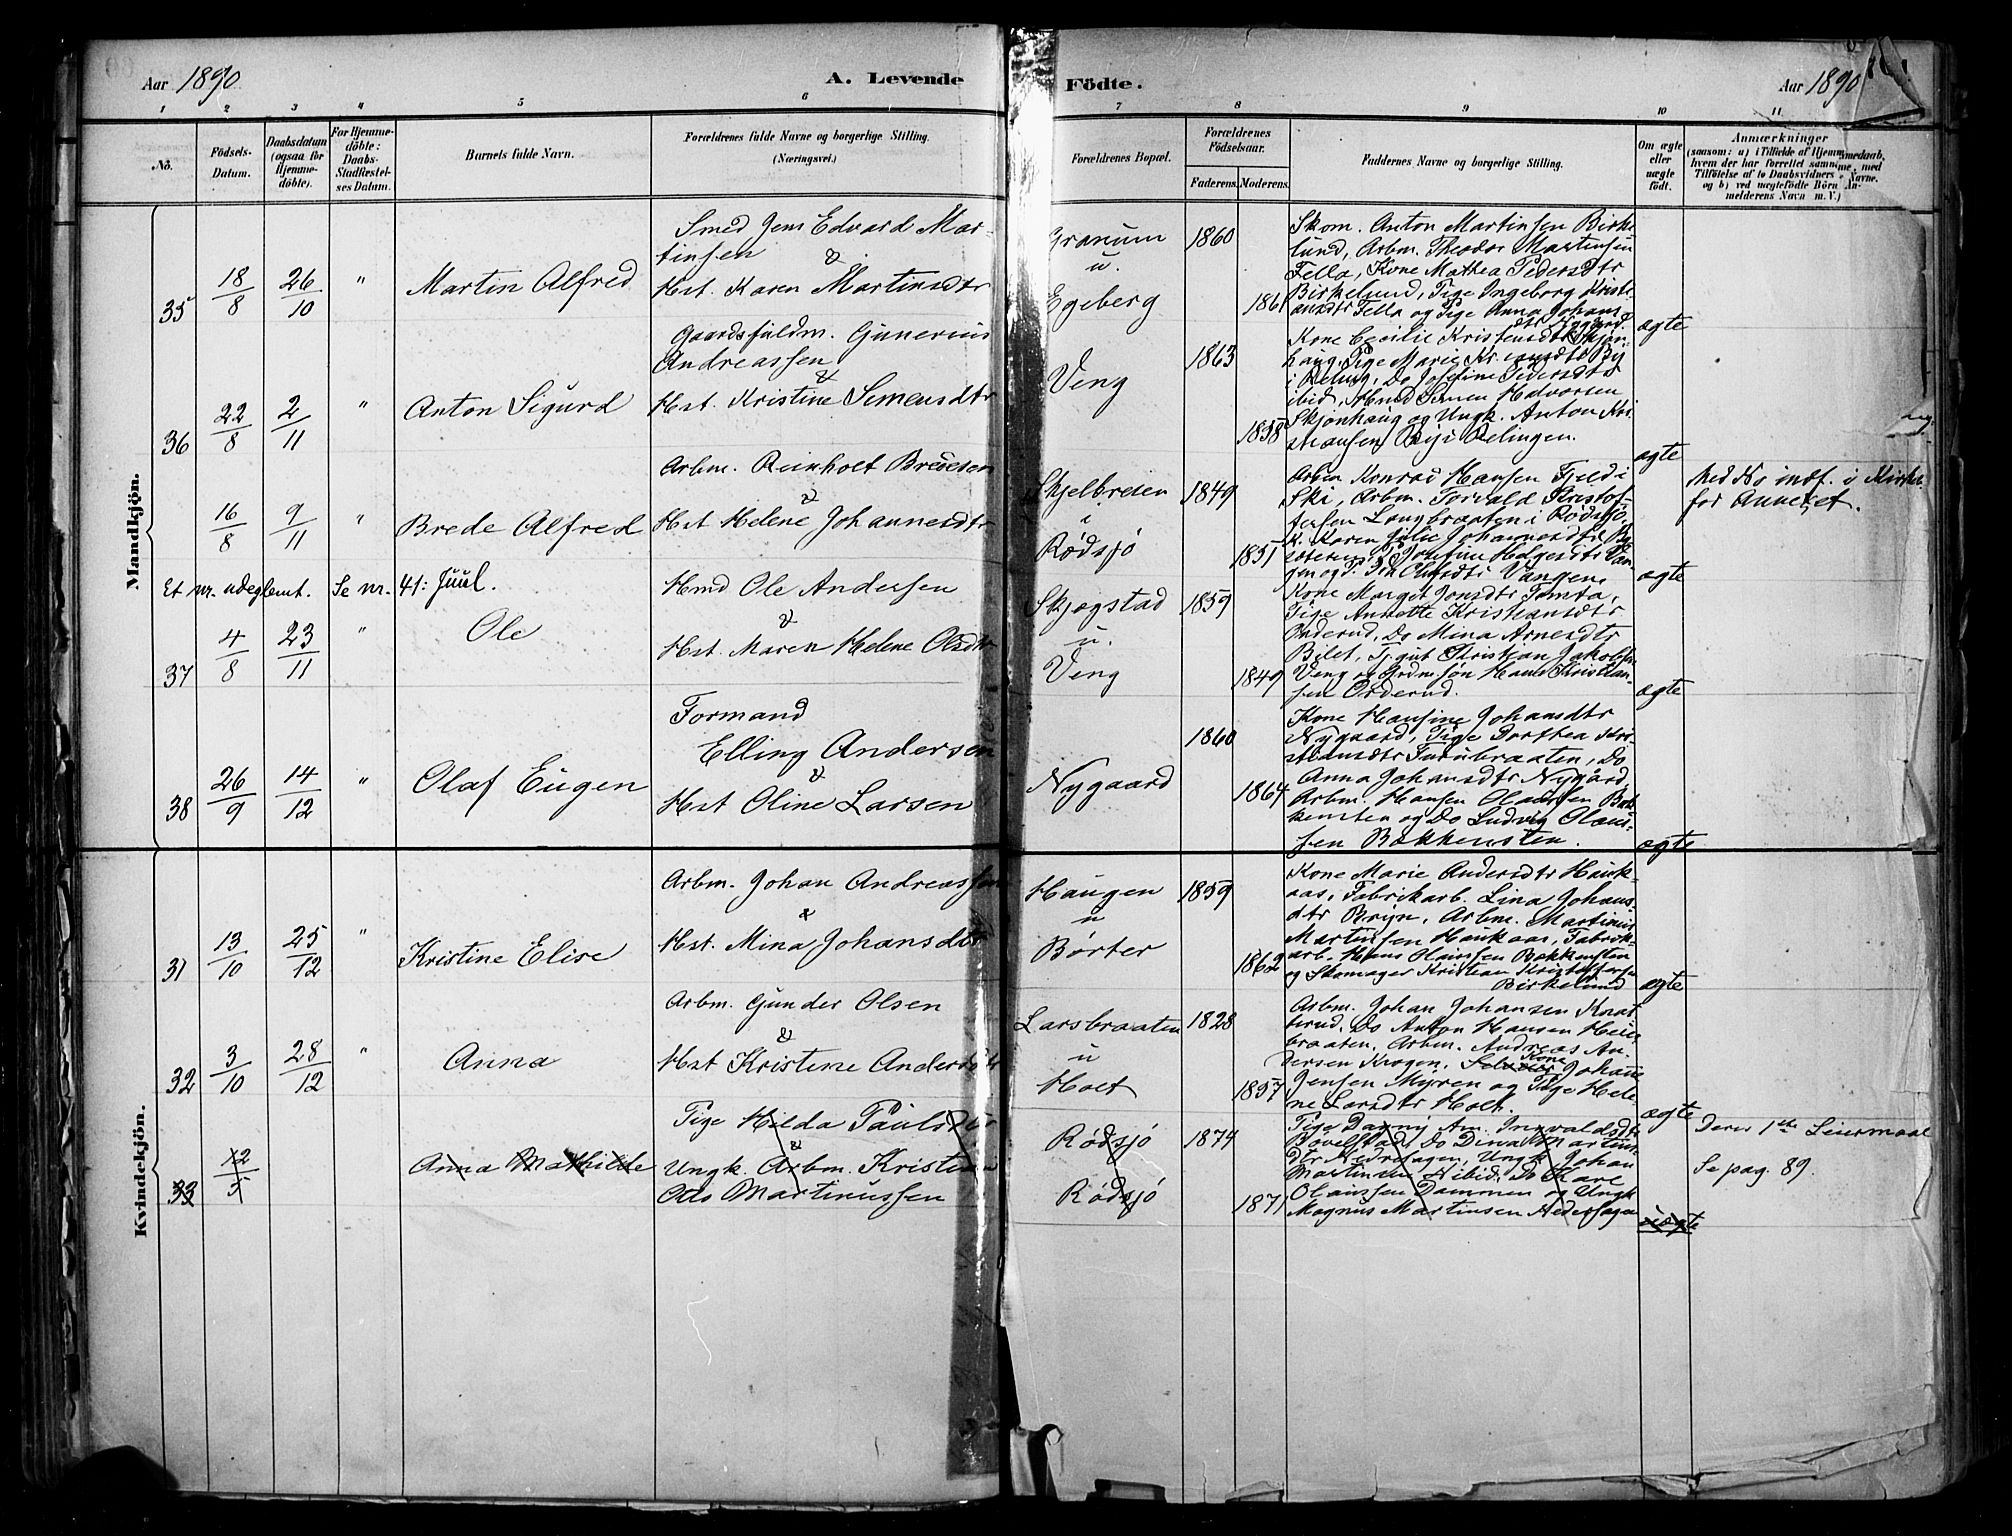 Aar 1890. A. Levende Födte. Aar 1890
1 2 3 4 5 6 7 8 9 10 11
No.
Födsels-Datum.
Daabsdatum (ogsaa for Hjemmedöbte).
For Hjemmedöbte: Daabs-Stadfæstelses Datum.
Barnets fulde Navn.
Forældrenes fulde Navne og borgerlige Stilling. (Næringsvei.)
Forældrenes Bopæl.
Forældrenes Födselsaar.
Faderens. Moderens.
Faddernes Navne og borgerlige Stilling.
Om ægte eller uægte födt.
Anmærkninger
(saasom: a) i Tilfælde af Hjemmedaab,
hvem der har forrettet samme, med
Tilföielse af to Daabsvidners Navne.
og b) ved uægtefödte Börn An-
melderens Navn m. V.)
Mandkjön.
35 18/8 26/10 " Martin Alfred
Smed Jens Edvard Mar-
tinsen
&
Hst. Karen Martinsdtr
Granum
u.
Egeberg
1860 1861
Skom. Anton Martinsen Birke-
lund, Arbm. Theodor Martinsen
Fella, Kone Mathea Pedersdtr
Birkelund, Pige Ingeborg Kristi-
ansdtr Fella og Pige Anna Johans
dtr Nygaard.
ægte
36 22/8 2/11 " Anton Sigurd
Gaardsfuldm. Gunerius
Andreassen
&
Hst. Kristine Simensdtr
Veng
1863 1858
Kone Cecilie Kristensdtr Skjön-
haug, Pige Marie Kr. dtr By
i Röling, Do Josefine Pedersdtr
ibid, Hmd Simen Halvorsen
Skjönhaug og Ungk. Anton Kri
stiansen By i Relingen.
ægte
16/8 9/11 " Brede Alfred
Arbm. Reinholt Bredesen
&
Hst Helene Johannesdtr
Skjelbreien
i
Rödsjö
1849 1851
Arbm Konrad Hansen Fjeld i
Ski, Arbm. Torvald Kristof-
fersen Langbraaten i Rödsjö,
K. Karen Julie Johannesdtr
P. Josefine Holgersdtr Van-
gen og P. Olufsdtr Vangen.
ægte
Med No indf. i Kirkeb.
for Annexet.
Et nr. udeglemt. Se nr. 41: Juul.
37 4/8 23/11 " Ole
Hmd Ole Andersen
&
Hst. Maren Helene Olsdtr
Skjogstad
u.
Veng
1859 1849
Kone Margit Jonsdtr Tomta,
Pige Annette Kristiansdtr
Orderud, Do Mina Arnesdtr
Bilet, Tjgut Kristian Jakobsen
Veng og Grdm. sön Hans Kristian-
sen Orderud.
ægte
38 26/9 14/12 " Olaf Eugen
Formand
Elling Andersen
&
Hst Oline Larsen
Nygaard
1860 1864
Kone Hansine Johansdtr
Nygaard, Pige Dorthea Kri-
stiansdtr Furubraaten, Do
Anna Johansdtr Nygård,
Arbm. Hansen Olaussen Bak-
kensten og Do Ludvig Olaus-
sen Bakkensten.
ægte
Kvindekjön.
31 13/10 25/12 " Kristine Elise
Arbm. Johan Andreassen
&
Hst. Mina Johansdtr
Haugen
u
Börter
1859 1862
Kone Marie Andersdtr Hauk-
aas, Fabrikarb. Lina Johans-
dtr Bryn, Arbm. Martinius
Martinsen Haukaas, Fabrik-
arb. Hans Olaussen Bakkensten
og Skomager Kristian Kristoffersen
Birkelund
ægte
32 3/10 28/12 " Anna
Arbm. Gunder Olsen
&
Hst Kristine Andersdtr
Larsbraaten
u
Holt
1828 1857
Arbm. Johan Johansen Knat
terud, Do Anton Hansen Heie
braaten, Arbm. Andreas An-
dersen Krogen, Kone Johanne
Jensen Myren og Pige Hele-
ne Larsdtr Holt.
ægte
33 12/5 Anna Mathilde
Pige Hilda Paulsdtr
&
Ungk. Arbm. Kristian
Otto Martinussen
Rödsjö
Rödsjö
1874 1871
Pige Dagny Am. Ingvaldsdtr
Bovelstad, Do Dina Martins
dtr Nedrehagen, Ungk Johan
Martinsen N ibid, Do Kare
Olaussen Dammen og Ungk
Magnus Martinsen Nedrehagen
uægte
Deres 1ste Leiermaal
Se pag. 89.